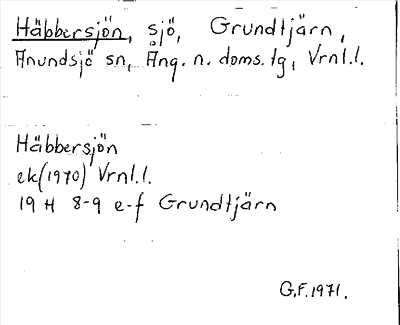 Häbbersjön, sjö, Grundtjärn,
Anundsjö sn, Ång. n. doms. tg, Vrnl.l.
Häbbersjön
ek(1970) Vrnl.l.
19 H 8-9 e-f Grundtjärn
G.F. 1971.